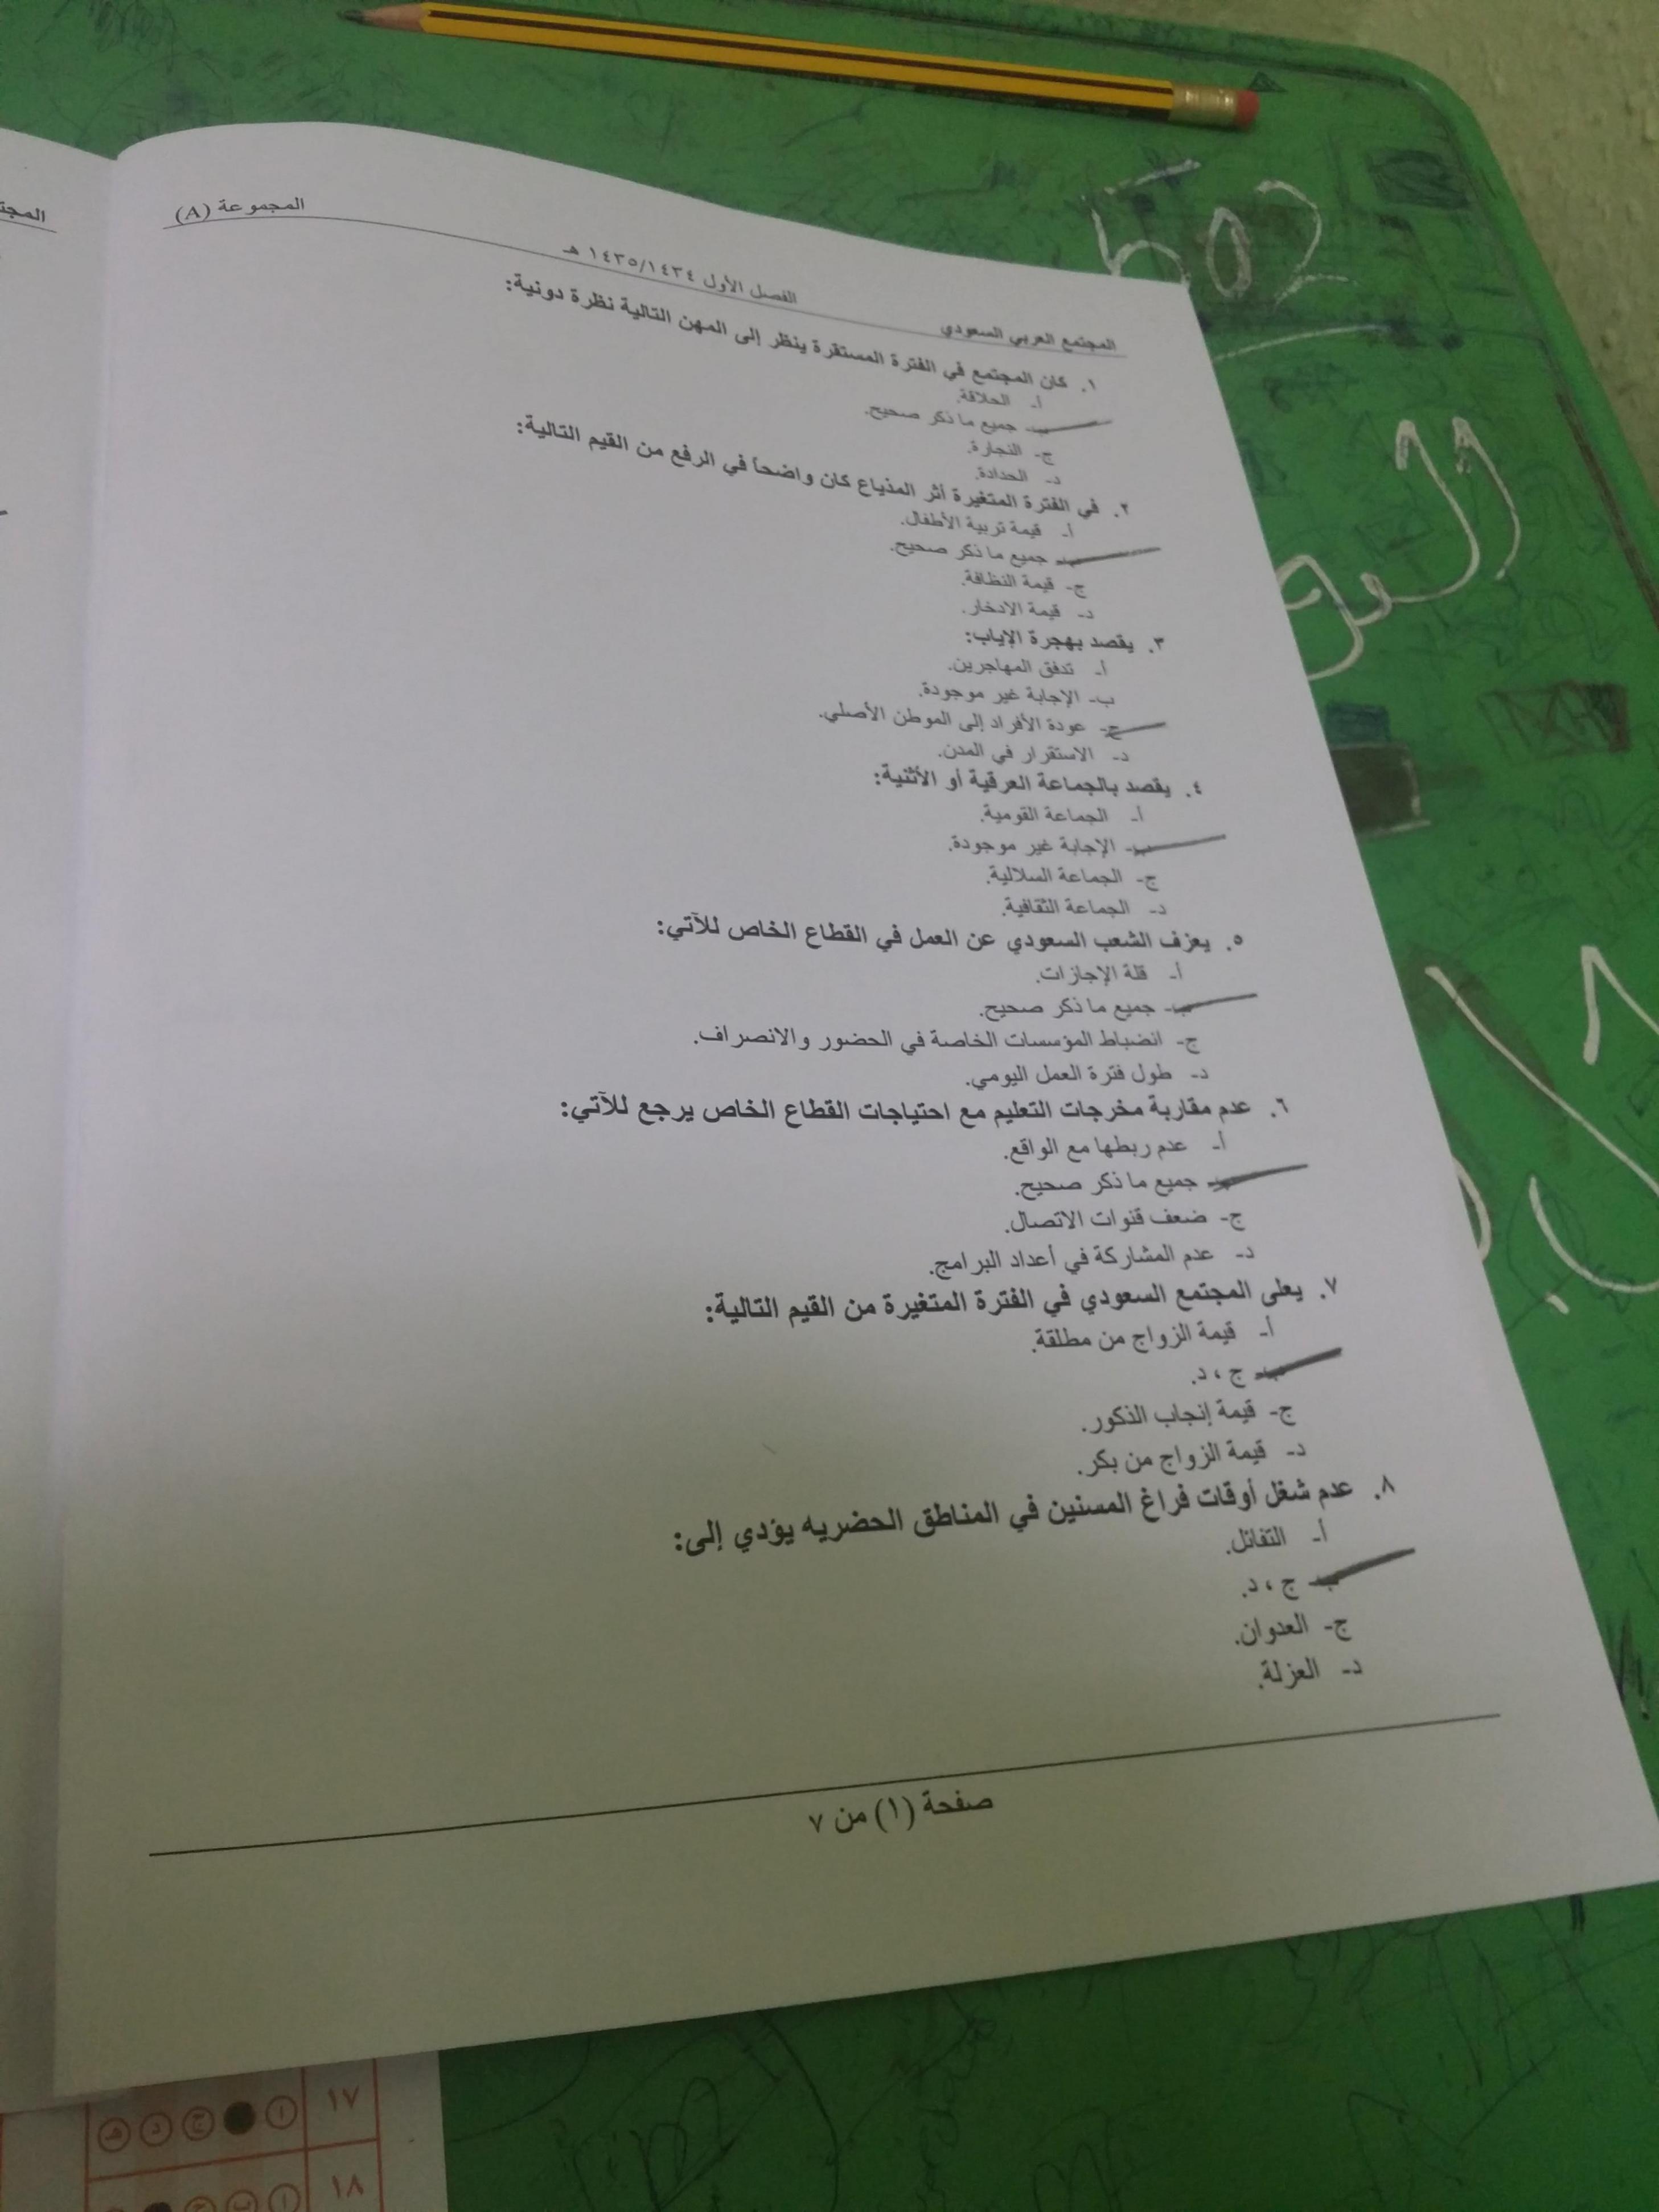 المجموعة (A)
الفصل الأول ١٤٣٥/١٤٣٤ هـ
المجتمع العربي السعودي
١. كان المجتمع في الفترة المستقرة ينظر إلى المهن التالية نظرة دونية:
أ- الحلاقة.
ب- جميع ما ذكر صحيح.
ج- النجارة.
د- الحدادة.
٢. في الفترة المتغيرة أثر المذياع كان واضحاً في الرفع من القيم التالية:
أ- قيمة تربية الأطفال.
ب- جميع ما ذكر صحيح.
ج- قيمة النظافة.
د- قيمة الادخار.
٣. يقصد بهجرة الإياب:
أ- تدفق المهاجرين.
ب- الإجابة غير موجودة.
ج- عودة الأفراد إلى الموطن الأصلي.
د- الاستقرار في المدن.
٤. يقصد بالجماعة العرقية أو الأثنية:
أ- الجماعة القومية.
ب- الإجابة غير موجودة.
ج- الجماعة السلالية.
د- الجماعة الثقافية.
٥. يعزف الشعب السعودي عن العمل في القطاع الخاص للآتي:
أ- قلة الإجازات.
ب- جميع ما ذكر صحيح.
ج- انضباط المؤسسات الخاصة في الحضور والانصراف.
د- طول فترة العمل اليومي.
٦. عدم مقاربة مخرجات التعليم مع احتياجات القطاع الخاص يرجع للآتي:
أ- عدم ربطها مع الواقع.
ب- جميع ما ذكر صحيح.
ج- ضعف قنوات الاتصال.
د- عدم المشاركة في أعداد البرامج.
٧. يعلى المجتمع السعودي في الفترة المتغيرة من القيم التالية:
أ- قيمة الزواج من مطلقة.
ب- ج ، د.
ج- قيمة إنجاب الذكور.
د- قيمة الزواج من بكر.
٨. عدم شغل أوقات فراغ المسنين في المناطق الحضريه يؤدي إلى:
أ- التفائل.
ب- ج ، د.
ج- العدوان.
د- العزلة.
صفحة (١) من ٧
١٧ ا ج د هـ
١٨ ا ب ج
502